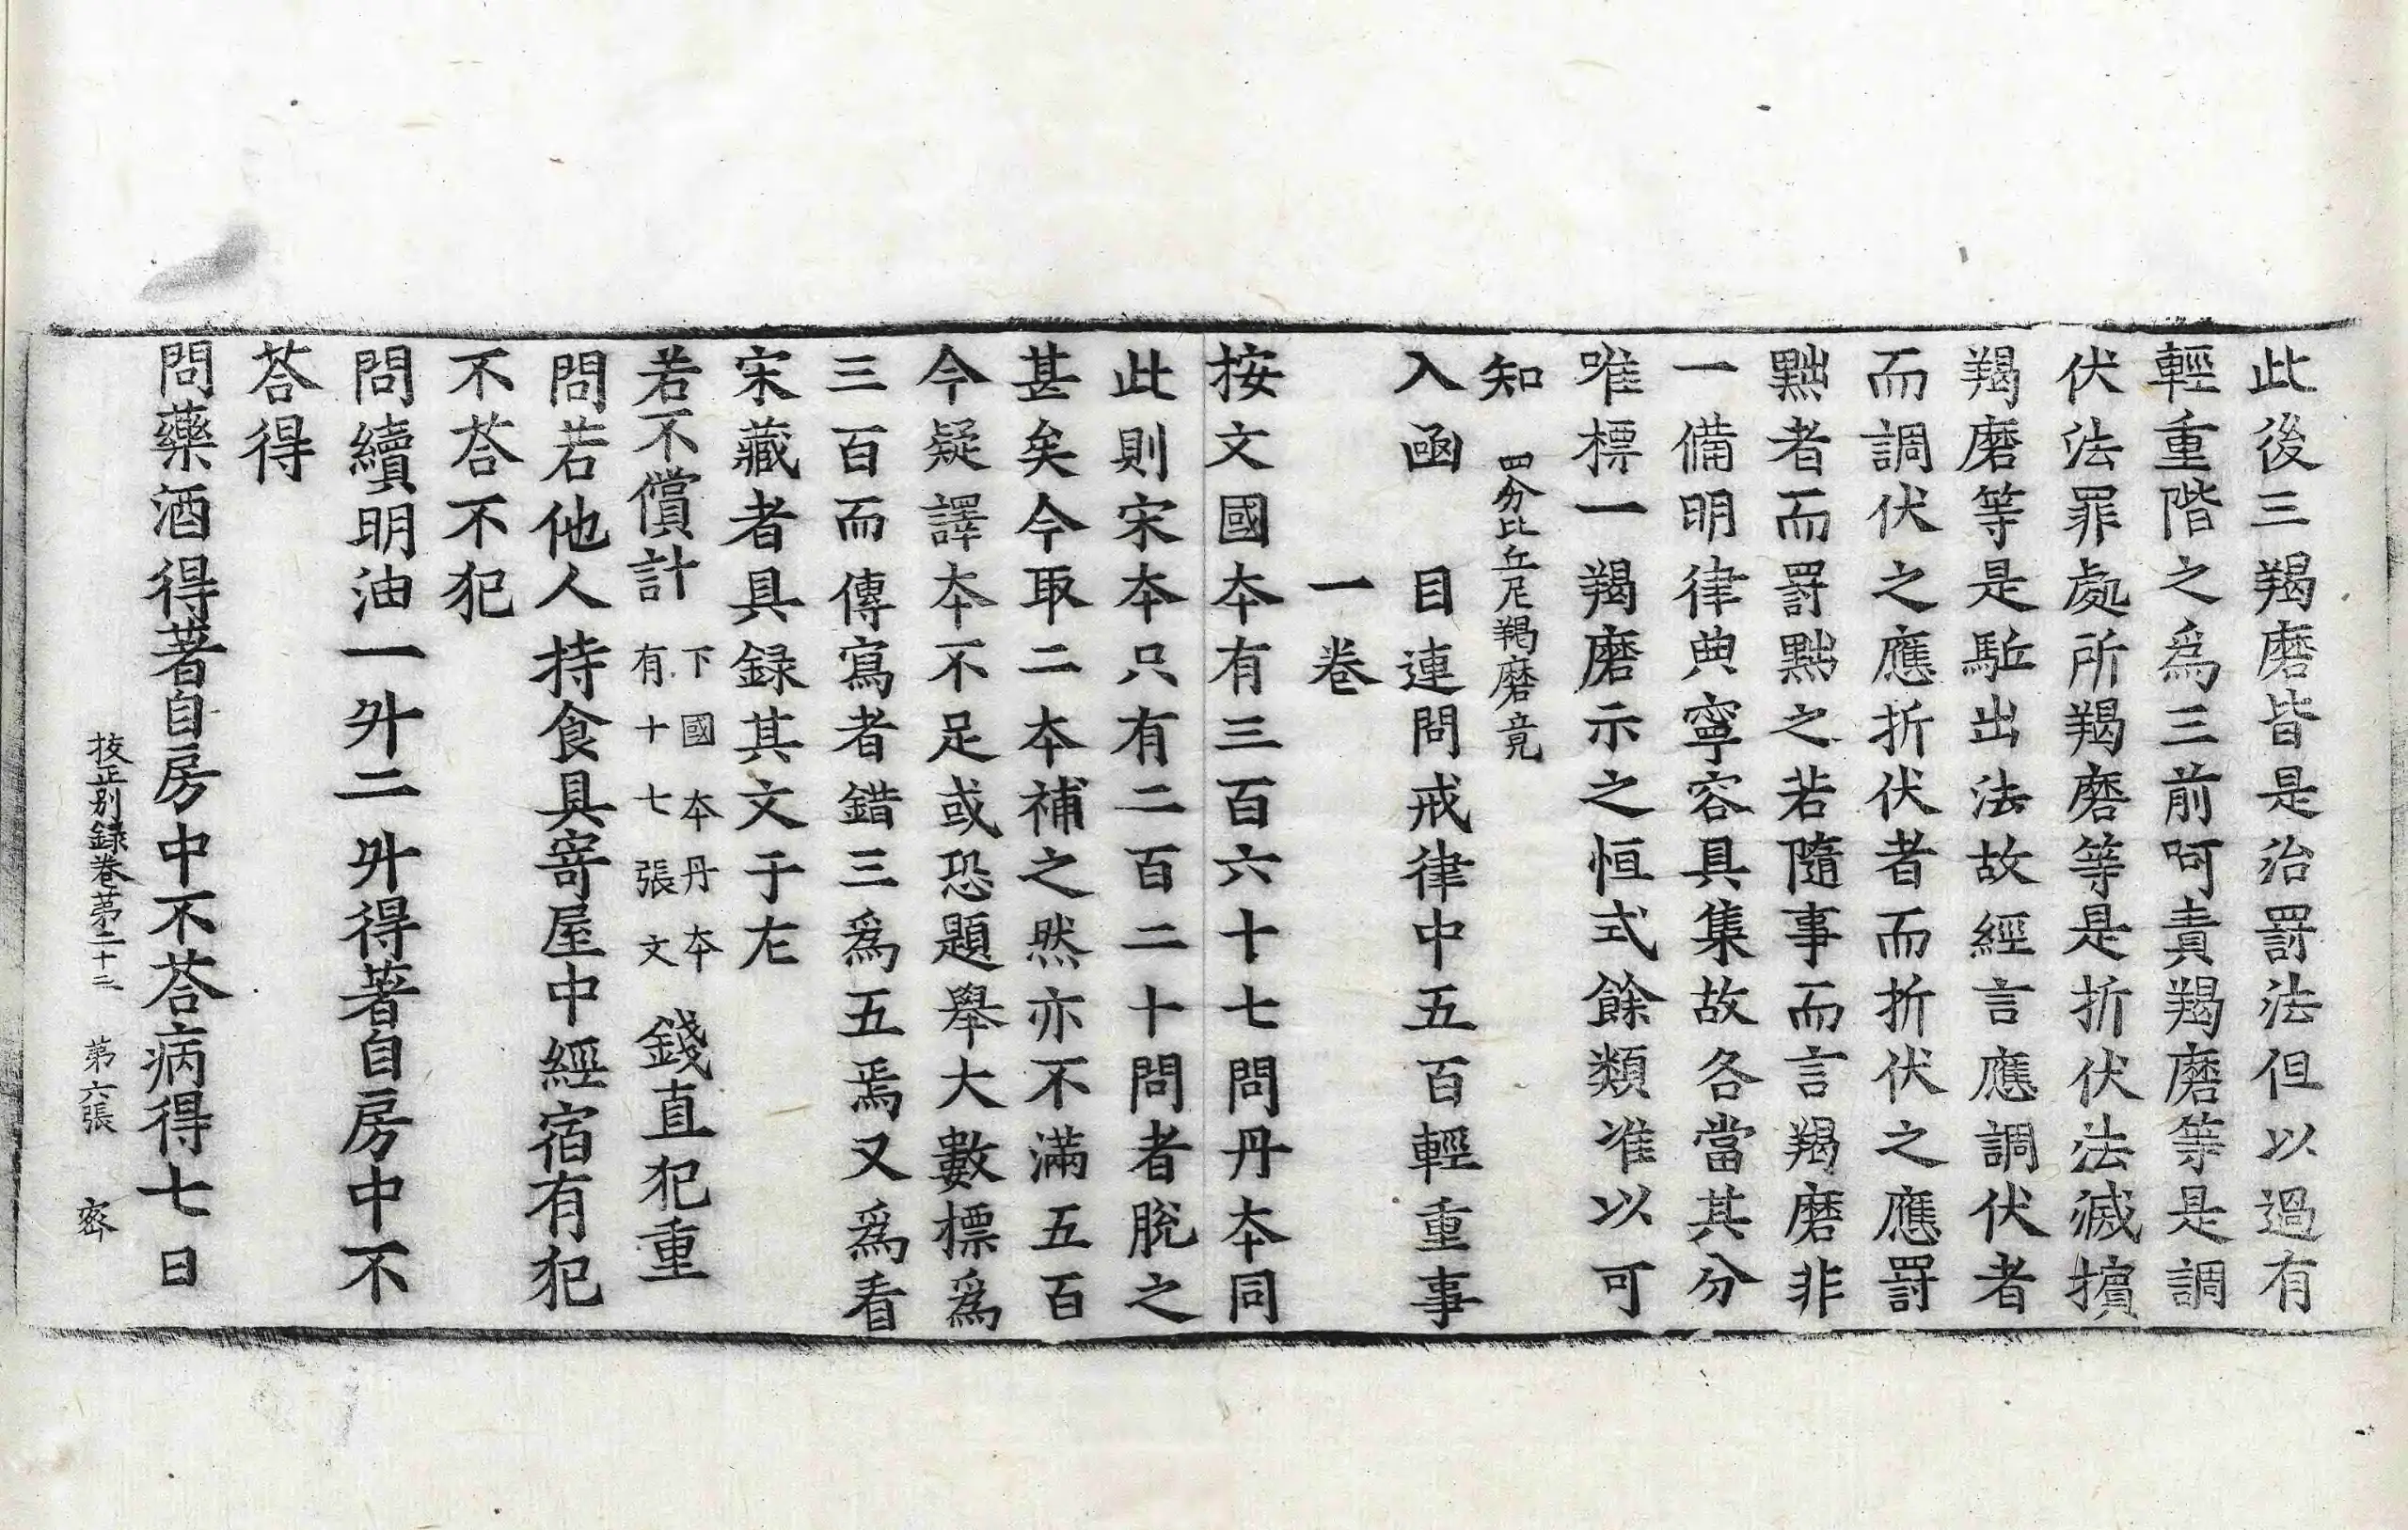 此後三羯磨皆是治罸法但以過有
輕重階之爲三前呵責羯磨等是調
伏法罪處所羯磨等是折伏法滅擯
羯磨等是駈出法故經言應調伏者
而調伏之應折伏者而折伏之應罸
黜者而罸黜之若隨事而言羯磨非
一備明律典寧容具集故各當其分
唯標一羯磨示之恒式餘類准以可
知 四分比丘尼羯磨竟
入函 目連問戒律中五百輕重事
一卷
按文國本有三百六十七問丹本同
此則宋本只有二百二十問者脫之
甚矣今取二本補之然亦不滿五百
今疑譯本不足或恐題舉大數標爲
三百而傳寫者錯三爲五焉又爲看
宋藏者具録其文于左
若不償計 下國本丹本有十七張文 錢直犯重
問若他人持食具寄屋中經宿有犯
不荅不犯
問續明油一升二升得著自房中不
荅得
問藥酒得著自房中不荅病得七日
挍正别録卷第二十三 第六張 密